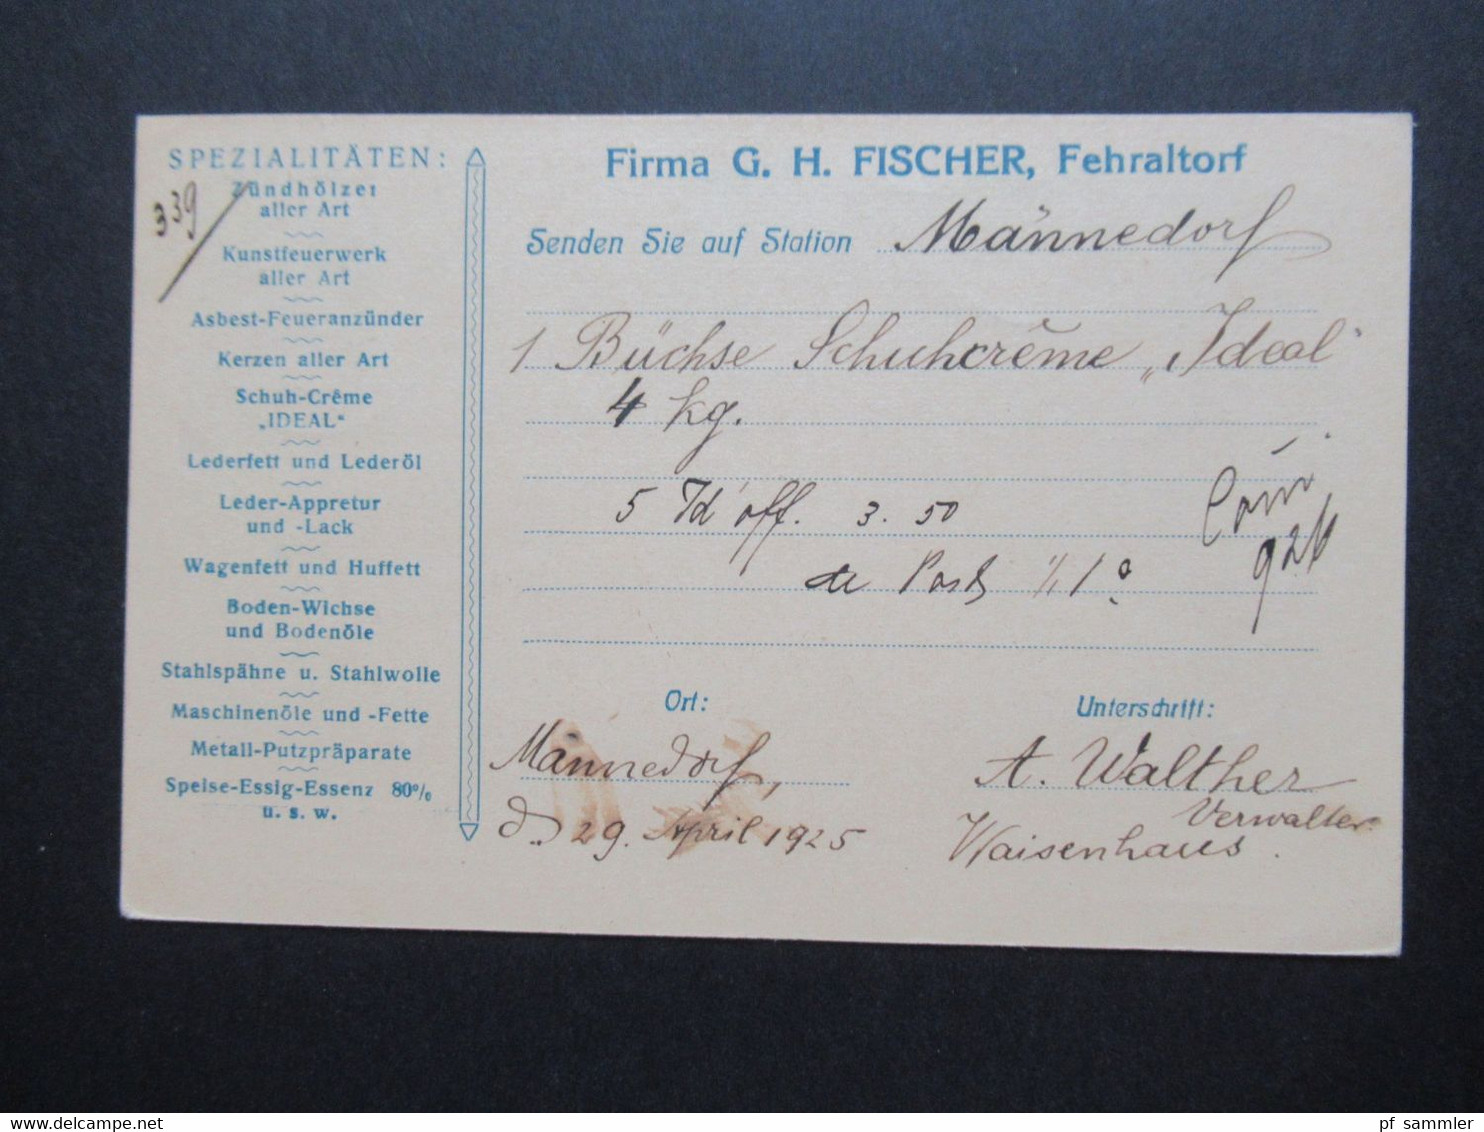 SPEZIALITÄTEN:
Zündhölzer
aller Art
Kunstfeuerwerk
aller Art
Asbest-Feueranzünder
Kerzen aller Art
Schuh-Crême
„IDEAL“
Lederfett und Lederöl
Leder-Appretur
und -Lack
Wagenfett und Huffett
Boden-Wichse
und Bodenöle
Stahlspähne u. Stahlwolle
Maschinenöle und -Fette
Metall-Putzpräparate
Speise-Essig-Essenz 80%
u. s. w.
339
Firma G. H. FISCHER, Fehraltorf
Senden Sie auf Station Männedorf
1 Büchse Schuhcrême „Ideal“
4 kg.
5 Id off. 3. 50
Ort:
Männedorf,
d. 29. April 1925
Unterschrift:
A. Walther
Verwalter
Waisenhaus.
pf sammler
www.delcampe.net